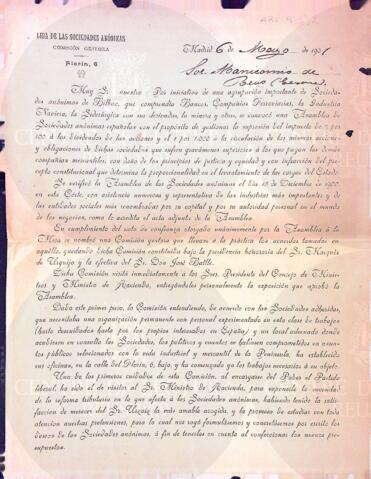 LIGA DE LAS SOCIEDADES ANÓNIMAS
COMISIÓN GESTORA
Florín, 6
Madrid 6 de Mayo de 1901
Sor. Manicomio de
Reus
Muy Sr. nuestro: Por iniciativa de una agrupación importante de Socie-
dades anónimas de Bilbao, que comprendía Bancos, Compañías Ferroviarias, la Industria
Naviera, la Siderúrgica con sus derivadas, la minera y otras, se convocó una Asamblea de
Sociedades anónimas españolas con el propósito de gestionar la supresión del impuesto de 3 por
100 á los dividendos de las acciones y el 1 por 1.000 á la circulación de las mismas acciones
y obligaciones de dichas sociedades que sufren gravámenes superiores á los que las demás
compañías mercantiles, con daño de los principios de justicia y equidad y con infracción del precepto
constitucional que determina la proporcionalidad en el levantamiento de las cargas del Estado.
Se verificó la Asamblea de las Sociedades anónimas el día 17 de Diciembre de 1900
en esta Corte, con asistencia numerosa y representativa de las industrias más importantes y de
las entidades sociales más renombradas por su capital y por su autoridad personal en el mundo
de los negocios, como lo acredita el acta adjunta de la Asamblea.
En cumplimiento del voto de confianza otorgado unánimemente por la Asamblea á la
Mesa se nombró una Comisión gestora que llevara á la práctica los acuerdos tomados en
aquélla, quedando dicha Comisión constituída bajo la presidencia honoraria del Sr. Marqués
de Urquijo y la efectiva del Sr. Don José Batlle.
Dicha Comisión visitó inmediatamente á los Sres. Presidente del Consejo de Minis-
tros y Ministro de Hacienda, entregándoles personalmente la exposición que aprobó la
Asamblea.
Dado este primer paso, la Comisión entendiendo, de acuerdo con las Sociedades adheridas,
que necesitaba una organización permanente con personal experimentado en esta clase de trabajos
(hasta descuidados hasta por los propios interesados en España) y un local adecuado donde
acudiesen en consulta las Sociedades, los políticos y cuantos se hallasen comprometidos en asun-
tos públicos relacionados con la vida industrial y mercantil de la Península, ha establecido
sus oficinas, en la calle del Florín, 6, bajo, y ha comenzado ya los trabajos necesarios á su objeto.
Uno de los primeros cuidados de esta Comisión, al encargarse del Poder el Partido
liberal, ha sido el de visitar al Sr. Ministro de Hacienda, para exponerle la necesidad
de la reforma tributaria en lo que afecta á las Sociedades anónimas, habiendo tenido la satis-
facción de merecer del Sr. Urzáiz la más amable acogida, y la promesa de estudiar con todo
atención nuestras pretensiones, para lo cual nos rogó formulásemos y concretásemos por escrito los
deseos de las Sociedades anónimas, á fin de tenerlos en cuenta al confeccionar los nuevos pre-
supuestos.